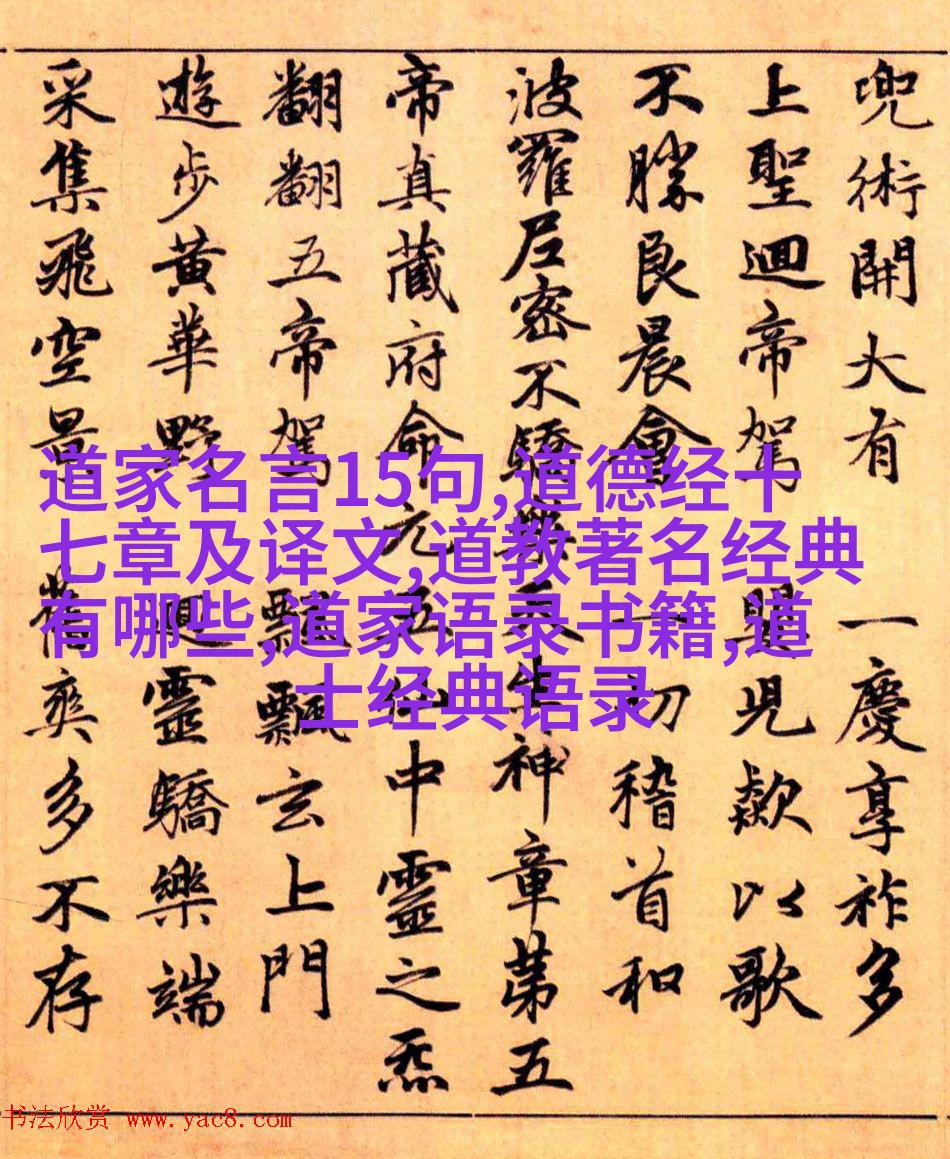 兜術開大有 一慶享祚多
上聖迴帝駕 兒歎以歌
不勝良晨會 一切稽首和
波羅尼密不驕樂天生神章第五
帝真藏府命元五仙中靈之炁
翻翻五帝駕 飄飄玄上門
遊步黃華野 迴靈驕樂端
采集飛空景 爽多不存
道家名言15句,道德经十
七章及译文,道教著名经典
有哪些,道家语录书籍,道
士经典语录
书法欣赏 www.yac8.com